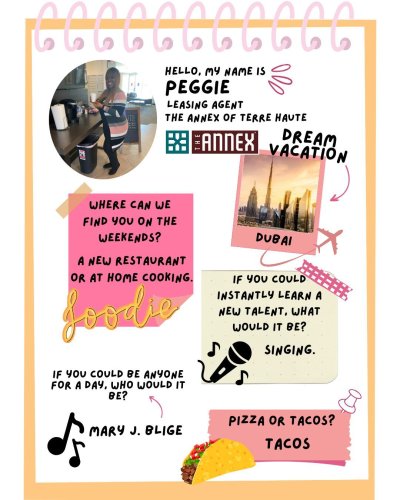 HELLO, MY NAME IS
PEGGIE
LEASING AGENT
THE ANNEX OF TERRE HAUTE
THE ANNEX
DREAM
VACATION
DUBAI
WHERE CAN WE
FIND YOU ON THE
WEEKENDS?
A NEW RESTAURANT
OR AT HOME COOKING.
foodie
IF YOU COULD
INSTANTLY LEARN A
NEW TALENT, WHAT
WOULD IT BE?
SINGING.
IF YOU COULD BE ANYONE
FOR A DAY, WHO WOULD IT
BE?
MARY J. BLIGE
PIZZA OR TACOS?
TACOS